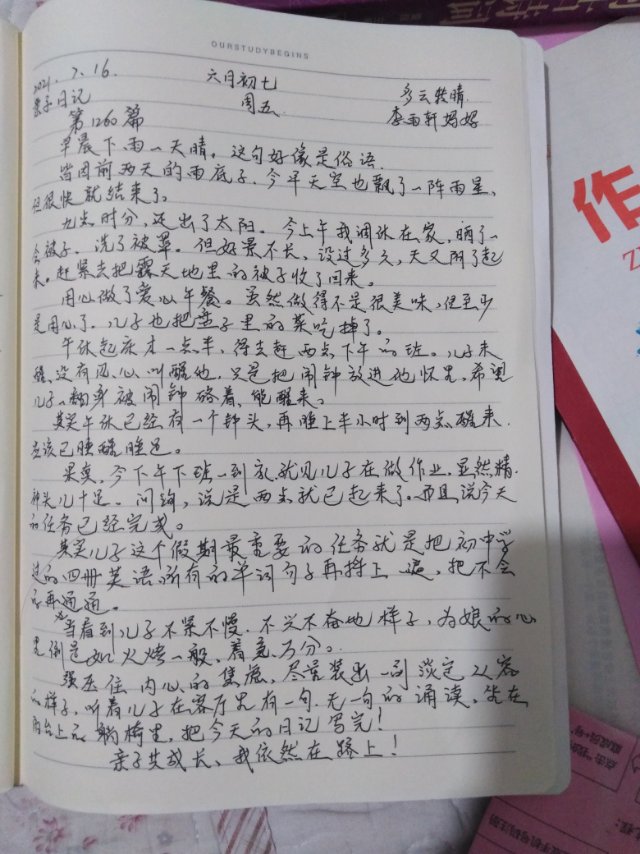 OURSTUDYBEGINS
2021.7.16. 六月初七 多云转晴
亲子日记 周五 李雨轩妈妈
第1260篇
早晨下雨一天晴。这句好像是俗语。
当因前两天的雨底子.今早天空也飘了一阵雨星、
但很快就结束了。
九点时分,还出了太阳。今上午我调休在家,晒了一
会被子,洗了被罩。但好景不长,没过多久,天又阴了起
来。赶紧去把露天地里的被子收了回来。
用心做了爱心午餐。虽然做得不是很美味,但至少
是用心了.儿子也把盘子里的菜吃掉了。
午休起床才一点半,得去赶两点下午的班。儿子未
醒、没有忍心叫醒他.只是把闹钟放进他怀里,希望
儿子一翻身被闹钟硌着、能醒来。
其实午休已经有一个钟头,再睡上半小时到两点醒来
应该已睡醒睡足。
果真,今下午下班一到家.就见儿子在做作业.显然精
神头儿十足。问询,说是两点就已起来了.而且说今天
的任务已经完成。
其实儿子这个假期最重要的任务就是把初中学
过的四册英语所有的单词句子再捋上一遍,把不会
的再通通。
当看到儿子不紧不慢.不兴不奋地样子,为娘的心
里倒是如火烤一般,着急万分。
强压住内心的焦虑,尽量装出一副淡定从容
的样子,听着儿子在客厅里有一句.无一句的诵读、坐在
阳台上的躺椅里,把今天的日记写完!
亲子共成长、我依然在路上!
作